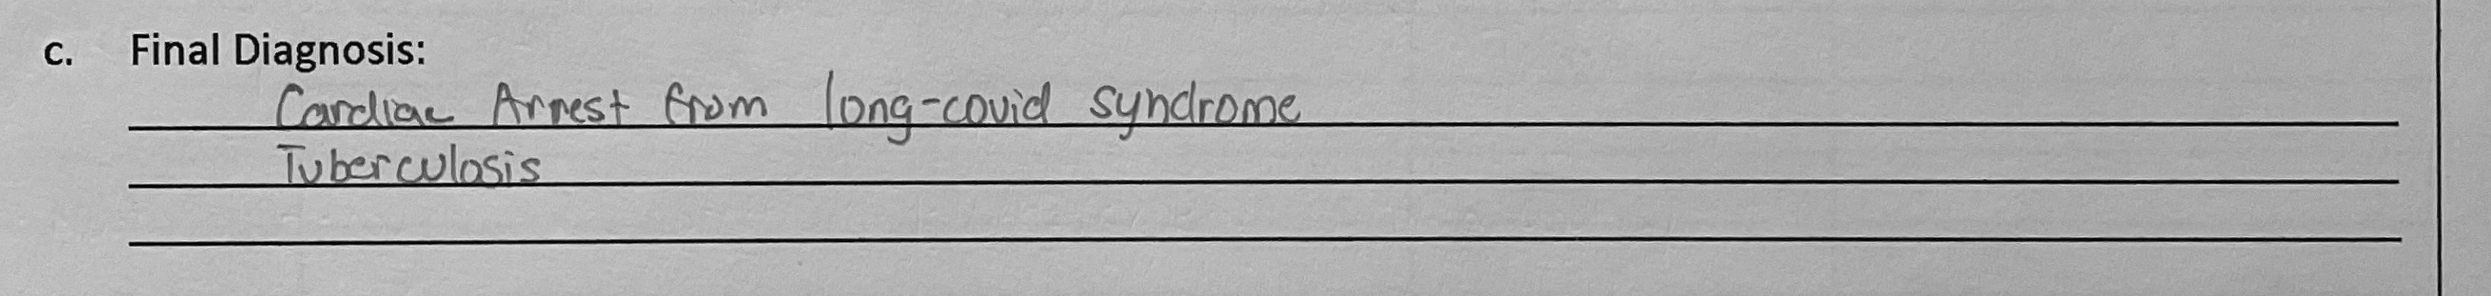 c. Final Diagnosis:
Cardiac Arrest from long-covid syndrome
Tuberculosis